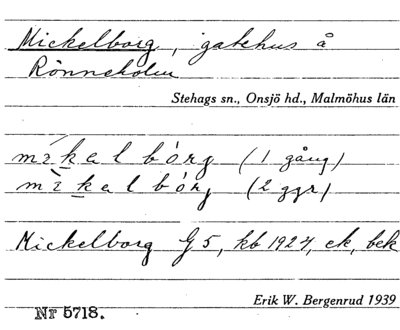 Mickelborg, gatehus å
Rönneholm
Stehags sn., Onsjö hd., Malmöhus län
mìkalbórg (1 gång)
mìkalbórg (2 ggr)
Mickelborg G 5, kb 1927, ek, bek
Erik W. Bergenrud 1939
Nr 5718.